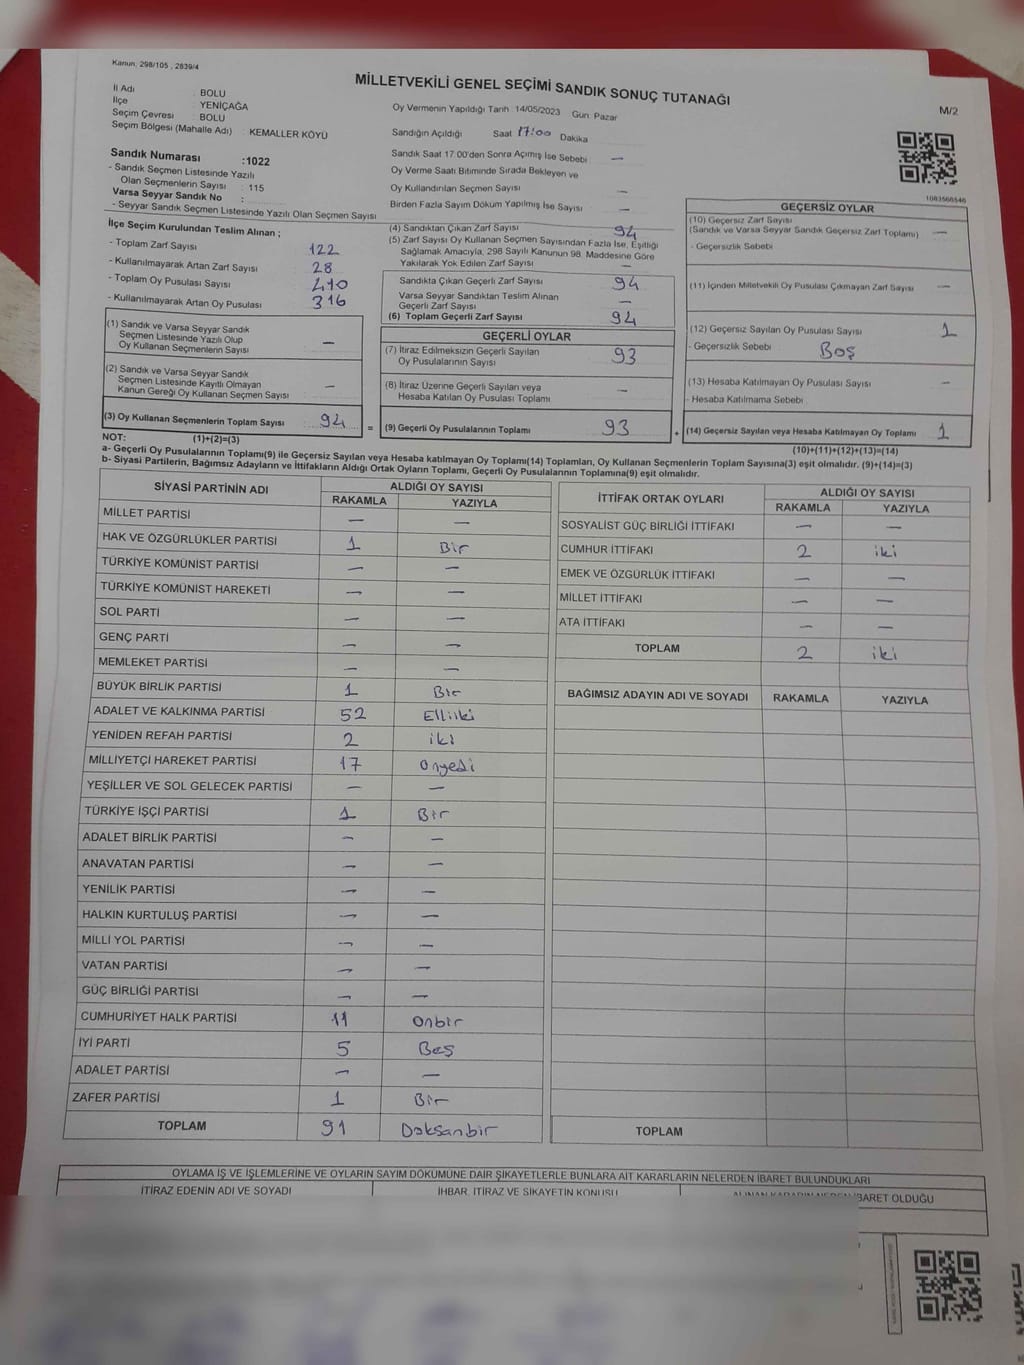 Kanun; 298/105 , 2839/4
MİLLETVEKİLİ GENEL SEÇİMİ SANDIK SONUÇ TUTANAĞI
M/2
İl Adı : BOLU
İlçe YENİÇAĞA
Seçim Çevresi BOLU
Seçim Bölgesi (Mahalle Adı) : KEMALLER KÖYÜ
Oy Vermenin Yapıldığı Tarih 14/05/2023 Gün: Pazar
Sandığın Açıldığı Saat 17:00 Dakika
Sandık Saat 17:00'den Sonra Açımış İse Sebebi —
Oy Verme Saati Bitiminde Sırada Bekleyen ve
Oy Kullandırılan Seçmen Sayısı —
Birden Fazla Sayım Döküm Yapılmış İse Sayısı —
Sandık Numarası :1022
- Sandık Seçmen Listesinde Yazılı
Olan Seçmenlerin Sayısı : 115
Varsa Seyyar Sandık No :
- Seyyar Sandık Seçmen Listesinde Yazılı Olan Seçmen Sayısı
İlçe Seçim Kurulundan Teslim Alınan ;
- Toplam Zarf Sayısı 122
- Kullanılmayarak Artan Zarf Sayısı 28
- Toplam Oy Pusulası Sayısı 410
- Kullanılmayarak Artan Oy Pusulası 316
(1) Sandık ve Varsa Seyyar Sandık
Seçmen Listesinde Yazılı Olup
Oy Kullanan Seçmenlerin Sayısı —
(2) Sandık ve Varsa Seyyar Sandık
Seçmen Listesinde Kayıtlı Olmayan
Kanun Gereği Oy Kullanan Seçmen Sayısı —
(3) Oy Kullanan Seçmenlerin Toplam Sayısı 94
(4) Sandıktan Çıkan Zarf Sayısı 94
(5) Zarf Sayısı Oy Kullanan Seçmen Sayısından Fazla İse, Eşitliği
Sağlamak Amacıyla, 298 Sayılı Kanunun 98. Maddesine Göre
Yakılarak Yok Edilen Zarf Sayısı —
Sandıkta Çıkan Geçerli Zarf Sayısı 94
Varsa Seyyar Sandıktan Teslim Alınan
Geçerli Zarf Sayısı —
(6) Toplam Geçerli Zarf Sayısı 94
GEÇERLİ OYLAR
(7) İtiraz Edilmeksizin Geçerli Sayılan
Oy Pusulalarının Sayısı 93
(8) İtiraz Üzerine Geçerli Sayılan veya
Hesaba Katılan Oy Pusulası Toplamı —
= (9) Geçerli Oy Pusulalarının Toplamı 93
1083566546
GEÇERSİZ OYLAR
(10) Geçersiz Zarf Sayısı
(Sandık ve Varsa Seyyar Sandık Geçersiz Zarf Toplamı) —
- Geçersizlik Sebebi
(11) İçinden Milletvekili Oy Pusulası Çıkmayan Zarf Sayısı —
(12) Geçersiz Sayılan Oy Pusulası Sayısı 1
- Geçersizlik Sebebi Boş
(13) Hesaba Katılmayan Oy Pusulası Sayısı —
- Hesaba Katılmama Sebebi
+ (14) Geçersiz Sayılan veya Hesaba Katılmayan Oy Toplamı 1
NOT: (1)+(2)=(3)
(10)+(11)+(12)+(13)=(14)
a- Geçerli Oy Pusulalarının Toplamı(9) ile Geçersiz Sayılan veya Hesaba katılmayan Oy Toplamı(14) Toplamları, Oy Kullanan Seçmenlerin Toplam Sayısına(3) eşit olmalıdır. (9)+(14)=(3)
b- Siyasi Partilerin, Bağımsız Adayların ve İttifakların Aldığı Ortak Oyların Toplamı, Geçerli Oy Pusulalarının Toplamına(9) eşit olmalıdır.
SİYASİ PARTİNİN ADI ALDIĞI OY SAYISI
RAKAMLA YAZIYLA
MİLLET PARTİSİ — —
HAK VE ÖZGÜRLÜKLER PARTİSİ 1 Bir
TÜRKİYE KOMÜNİST PARTİSİ — —
TÜRKİYE KOMÜNİST HAREKETİ — —
SOL PARTİ — —
GENÇ PARTİ — —
MEMLEKET PARTİSİ — —
BÜYÜK BİRLİK PARTİSİ 1 Bir
ADALET VE KALKINMA PARTİSİ 52 Elliiki
YENİDEN REFAH PARTİSİ 2 iki
MİLLİYETÇİ HAREKET PARTİSİ 17 Onyedi
YEŞİLLER VE SOL GELECEK PARTİSİ — —
TÜRKİYE İŞÇİ PARTİSİ 1 Bir
ADALET BİRLİK PARTİSİ — —
ANAVATAN PARTİSİ — —
YENİLİK PARTİSİ — —
HALKIN KURTULUŞ PARTİSİ — —
MİLLİ YOL PARTİSİ — —
VATAN PARTİSİ — —
GÜÇ BİRLİĞİ PARTİSİ — —
CUMHURİYET HALK PARTİSİ 11 Onbir
İYİ PARTİ 5 Beş
ADALET PARTİSİ — —
ZAFER PARTİSİ 1 Bir
TOPLAM 91 Doksanbir
İTTİFAK ORTAK OYLARI ALDIĞI OY SAYISI
RAKAMLA YAZIYLA
SOSYALİST GÜÇ BİRLİĞİ İTTİFAKI — —
CUMHUR İTTİFAKI 2 iki
EMEK VE ÖZGÜRLÜK İTTİFAKI — —
MİLLET İTTİFAKI — —
ATA İTTİFAKI — —
TOPLAM 2 iki
BAĞIMSIZ ADAYIN ADI VE SOYADI RAKAMLA YAZIYLA
TOPLAM
OYLAMA İŞ VE İŞLEMLERİNE VE OYLARIN SAYIM DÖKÜMÜNE DAİR ŞİKAYETLERLE BUNLARA AİT KARARLARIN NELERDEN İBARET BULUNDUKLARI
İTİRAZ EDENİN ADI VE SOYADI İHBAR, İTİRAZ VE ŞİKAYETİN KONUSU İBARET OLDUĞU